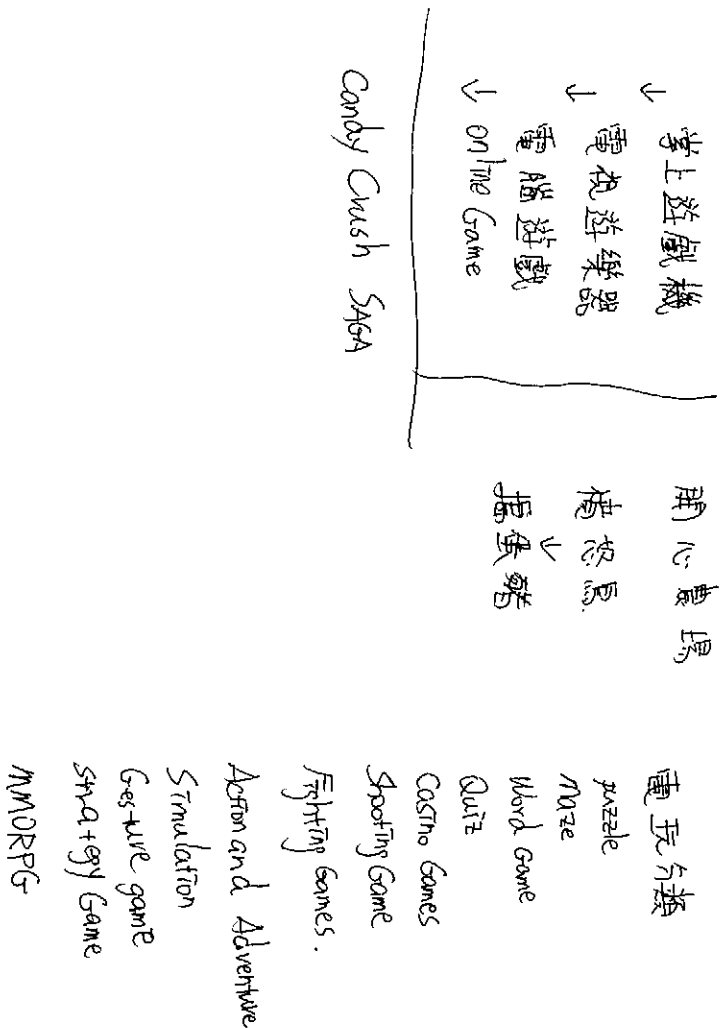 掌上遊戲機
↓ 電視遊樂器
↓ 電腦遊戲
↓ online Game
Candy Crush SAGA
開心農場
憤怒鳥
↓
搗蛋豬
電玩分類
puzzle
maze
Word Game
Quiz
Casino Games
Shooting Game
Fighting Games.
Action and Adventure
Simulation
Gesture game
Strategy Game
MMORPG